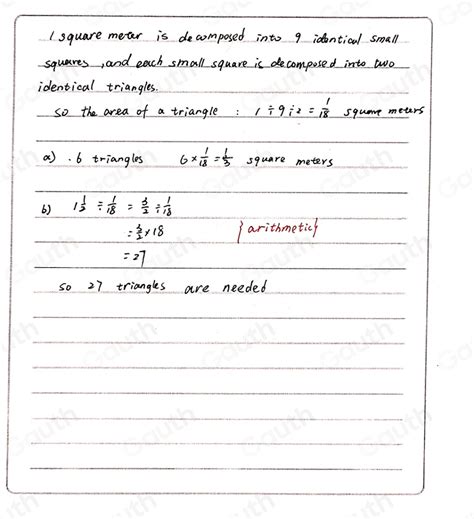 1 square meter is decomposed into 9 identical small
squares, and each small square is decomposed into two
identical triangles.
so the area of a triangle : 1 ÷ 9 ÷ 2 = 1/18 square meters
a) . 6 triangles 6 × 1/18 = 1/3 square meters
b) 1 1/2 ÷ 1/18 = 3/2 ÷ 1/18
= 3/2 × 18
= 27
{arithmetic}
so 27 triangles are needed
Gauth